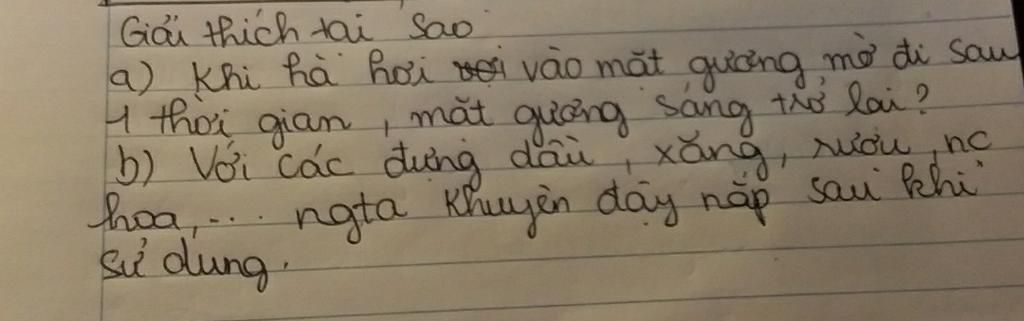 Giải thích tại sao
a) Khi hà hơi vào mặt gương mờ đi sau
1 thời gian, mặt gương sáng trở lại?
b) Với các đựng dầu, xăng, rượu, nc
hoa,... ngta khuyên đậy nắp sau khi
sử dụng.